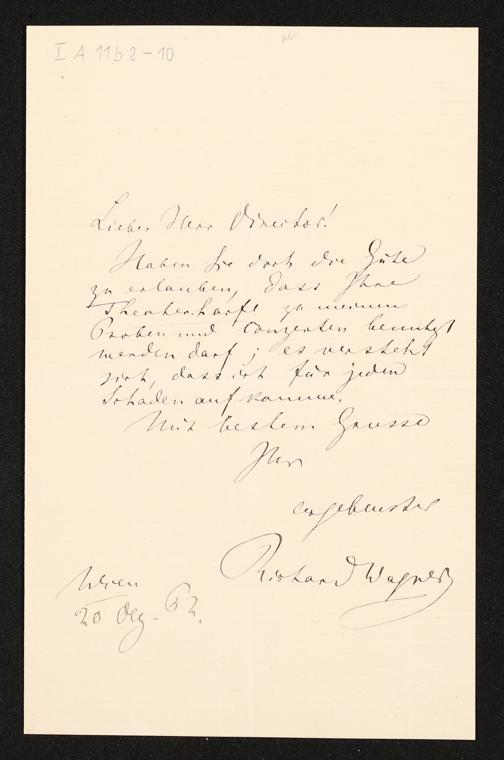 I A 11b 2 - 10
Lieber Herr Director!
Haben Sie doch die Güte
zu erlauben, dass Ihre
Theaterharfe zu meinen
Proben und Conzerten benutzt
werden darf; es versteht
sich, dass ich für jeden
Schaden aufkomme.
Mit bestem Grusse
Ihr
ergebenster
Richard Wagner
Wien
20 Dez. 62.